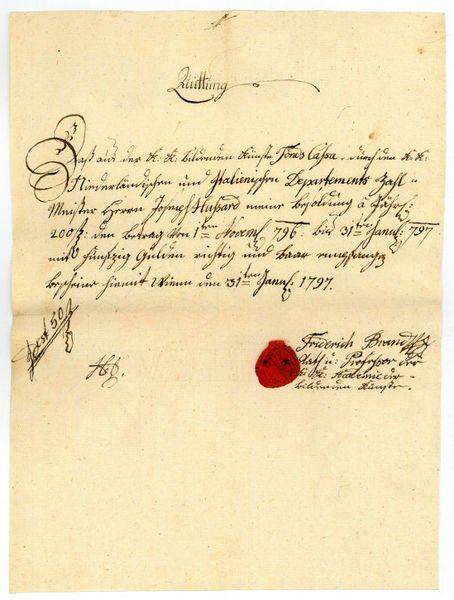 Quittung
Daß aus der K: K: bildenden Künste Fonds Cassa durch den K: K:
Niederländischen und Italienischen Departements Zahl-
Meister Herrn Joseph Hussard meine Besoldung à Jährl:
200 f: den betrag von 1ten Novemb 796. bis 31ten Jann: 797
mit fünfzig Gulden richtig und baar empfangen
bescheine hiemit Wienn den 31ten Jann: 1797.
50 f
Friderich Brand
Rath u: Professor der
K: K: Academie der
bildenden Künste.